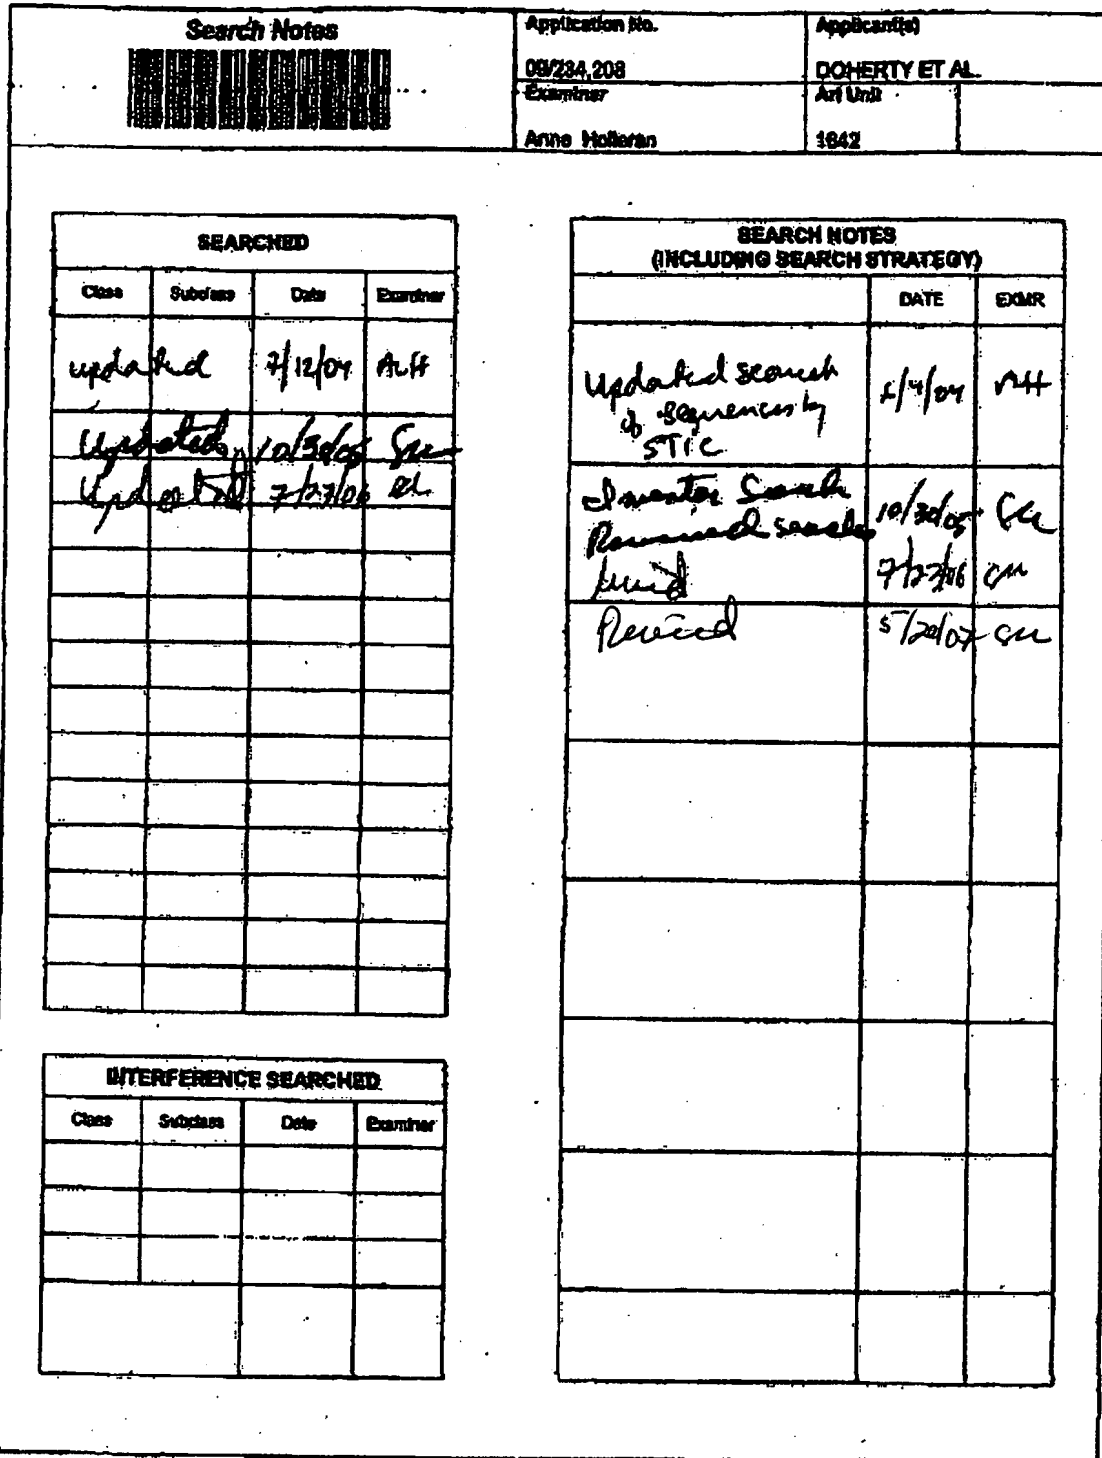 Search Notes
Application No.
Applicant(s)
09/284,208
DOHERTY ET AL.
Examiner
Art Unit
Anne Holleran
1642
SEARCHED
Class Subclass Date Examiner
updated 7/12/04 ALH
Updated 10/30/05
Updated 7/27/06
INTERFERENCE SEARCHED
Class Subclass Date Examiner
SEARCH NOTES
(INCLUDING SEARCH STRATEGY)
DATE EXMR
Updated search
of sequences by
STIC
Inventor Search
search 10/30/05
7/27/06
5/20/07